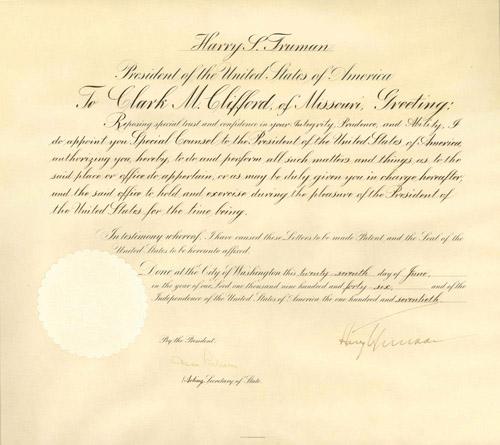 Harry S. Truman
President of the United States of America
To Clark M. Clifford, of Missouri, Greeting:
Reposing special trust and confidence in your Integrity, Prudence, and Ability, I
do appoint you Special Counsel to the President of the United States of America,
authorizing you, hereby, to do and perform all such matters and things as to the
said place or office do appertain, or as may be duly given you in charge hereafter,
and the said office to hold and exercise during the pleasure of the President of
the United States for the time being.
In testimony whereof, I have caused these Letters to be made Patent and the Seal of the
United States to be hereunto affixed.
Done at the City of Washington this twenty seventh day of June,
in the year of our Lord one thousand nine hundred and forty six, and of the
Independence of the United States of America the one hundred and seventieth.
By the President:
Harry Truman
Acting Secretary of State.